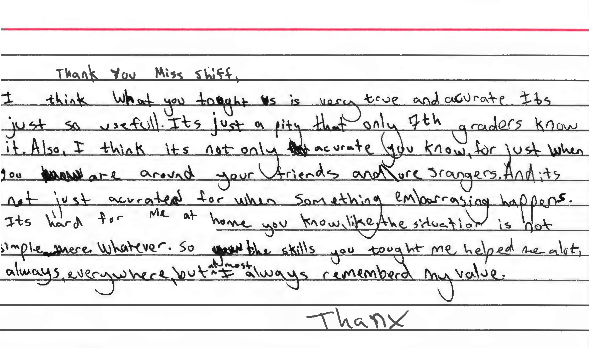 Thank You Miss Shiff,
I think what you tought us is very true and acurate. Its
just so usefull. Its just a pity that only 7th graders know
it. Also, I think its not only acurate you know, for just when
you are around your friends and are srangers. And its
not just acurated for when something embarrasing happens.
Its hard for me at home you know, like the situation is not
simple there. Whatever. So the skills you tought me helped me alot,
always, everywhere, but almost I always rememberd my value.
Thanx